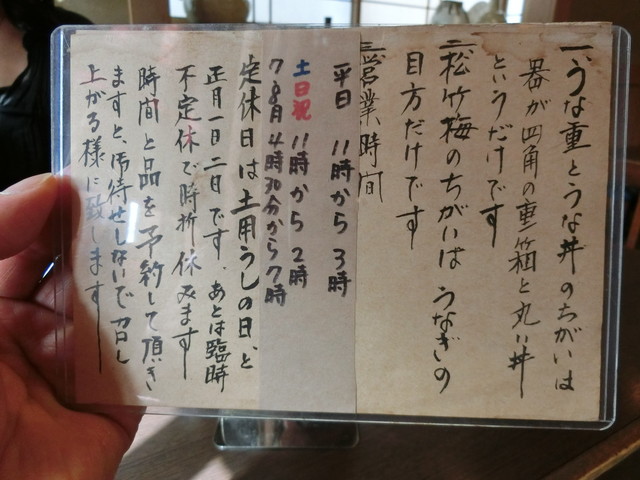 一、うな重とうな丼のちがいは
器が四角の重箱と丸い丼
というだけです
二、松竹梅のちがいは うなぎの
目方だけです
三、営業時間
平日 11時から3時
土日祝 11時から2時
7・8月 4時30分から7時
定休日は土用うしの日、と
正月一日二日です、あとは臨時
不定休で時折休みます
時間と品を予約して頂き
ますと、御待せしないでカロし
上がる様に致します